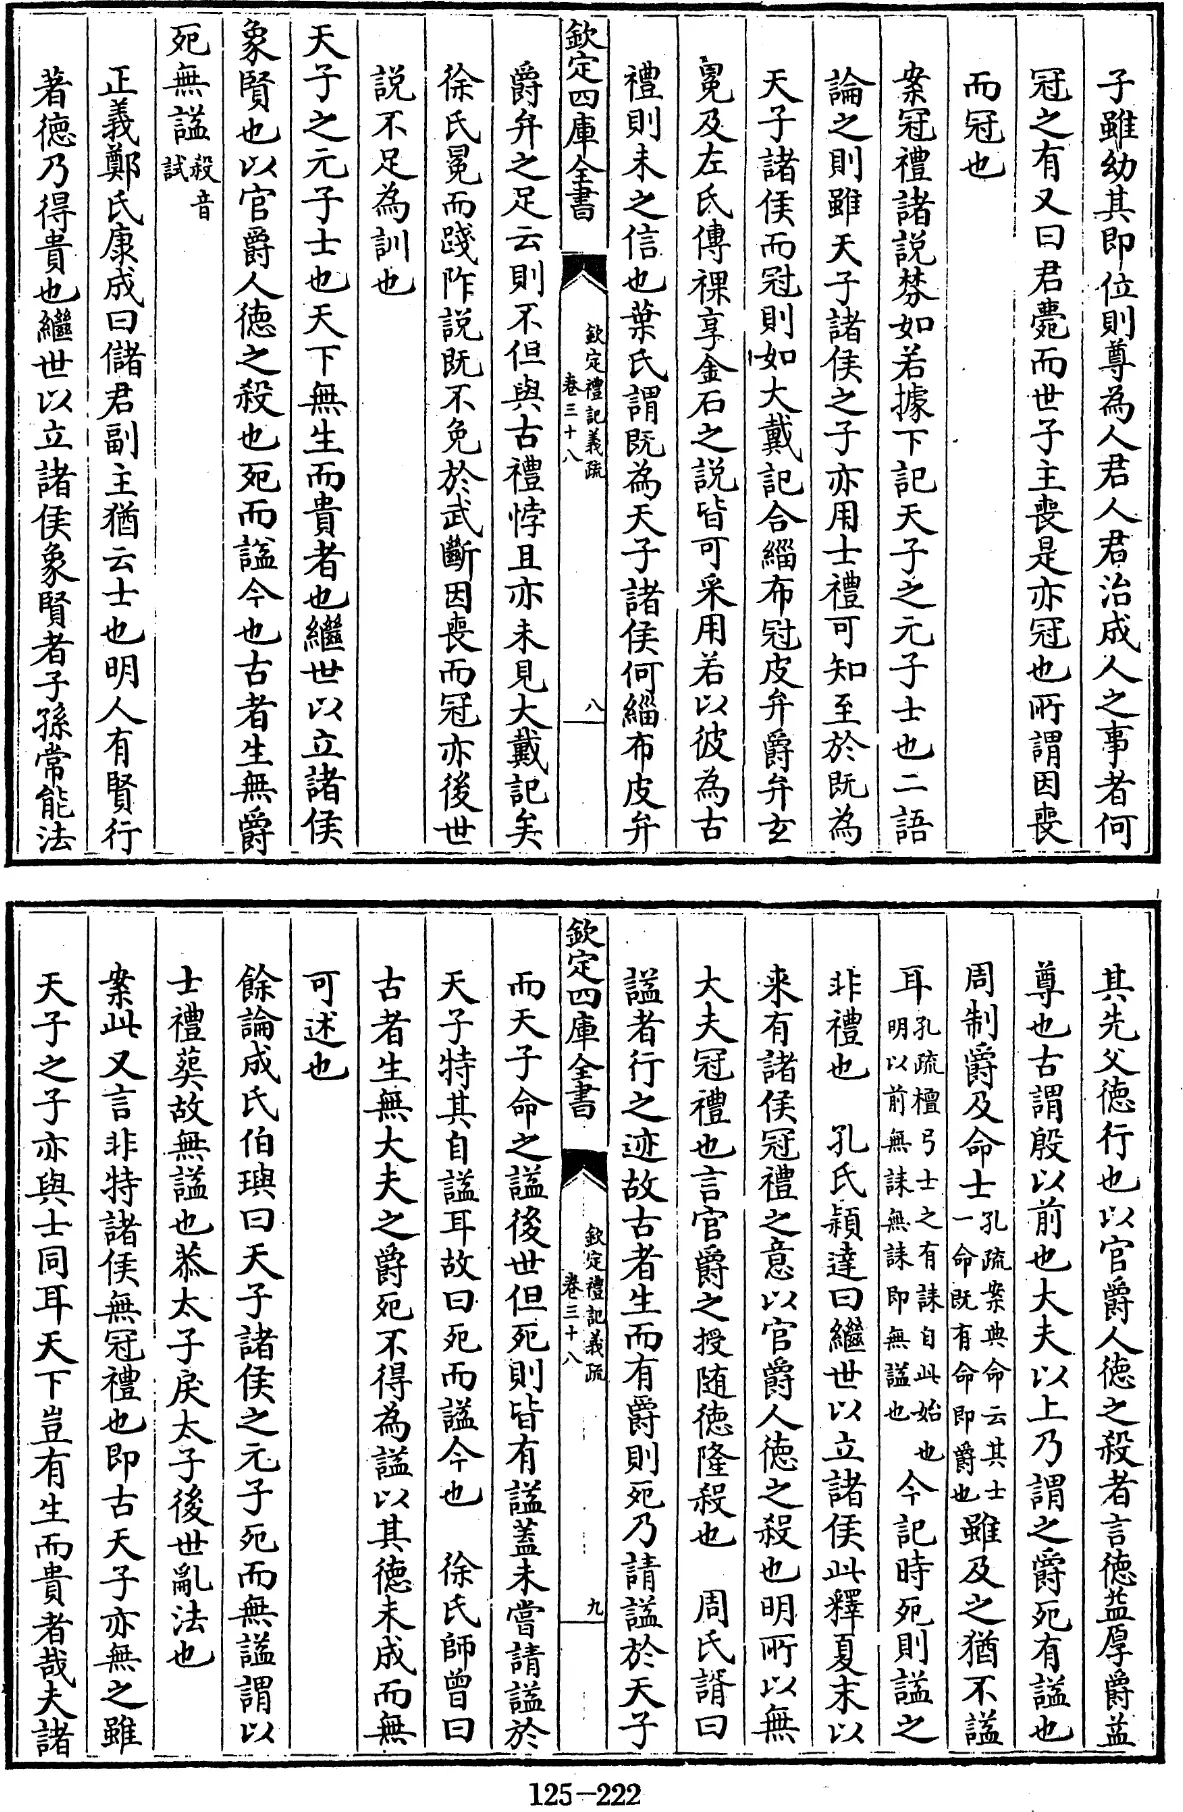 子雖幼其即位則尊為人君人君治成人之事者何
冠之有又曰君薨而世子主喪是亦冠也所謂因喪
而冠也
案冠禮諸説棼如若據下記天子之元子士也二語
論之則雖天子諸侯之子亦用士禮可知至於既為
天子諸侯而冠則如大戴記合緇布冠皮弁爵弁玄
冕及左氏傳祼享金石之説皆可采用若以彼為古
禮則未之信也葉氏謂既為天子諸侯何緇布皮弁
欽定四庫全書
欽定禮記義疏
卷三十八
八
爵弁之足云則不但與古禮悖且亦未見大戴記矣
徐氏冕而踐阼説既不免於武斷因喪而冠亦後世
説不足為訓也
天子之元子士也天下無生而貴者也繼世以立諸侯
象賢也以官爵人德之殺也死而諡今也古者生無爵
死無諡殺音
試
正義鄭氏康成曰儲君副主猶云士也明人有賢行
著德乃得貴也繼世以立諸侯象賢者子孫常能法
其先父德行也以官爵人德之殺者言德益厚爵益
尊也古謂殷以前也大夫以上乃謂之爵死有諡也
周制爵及命士孔疏案典命云其士
一命既有命即爵也雖及之猶不諡
耳孔疏檀弓士之有誄自此始也
明以前無誄無誄即無諡也今記時死則諡之
非禮也　孔氏穎達曰繼世以立諸侯此釋夏末以
來有諸侯冠禮之意以官爵人德之殺也明所以無
大夫冠禮也言官爵之授随德隆殺也　周氏諝曰
諡者行之迹故古者生而有爵則死乃請諡於天子
欽定四庫全書
欽定禮記義疏
卷三十八
九
而天子命之諡後世但死則皆有諡蓋未嘗請諡於
天子特其自諡耳故曰死而諡今也　徐氏師曾曰
古者生無大夫之爵死不得為諡以其德未成而無
可述也
餘論成氏伯璵曰天子諸侯之元子死而無諡謂以
士禮葬故無諡也恭太子戾太子後世亂法也
案此又言非特諸侯無冠禮也即古天子亦無之雖
天子之子亦與士同耳天下豈有生而貴者哉夫諸
125-222